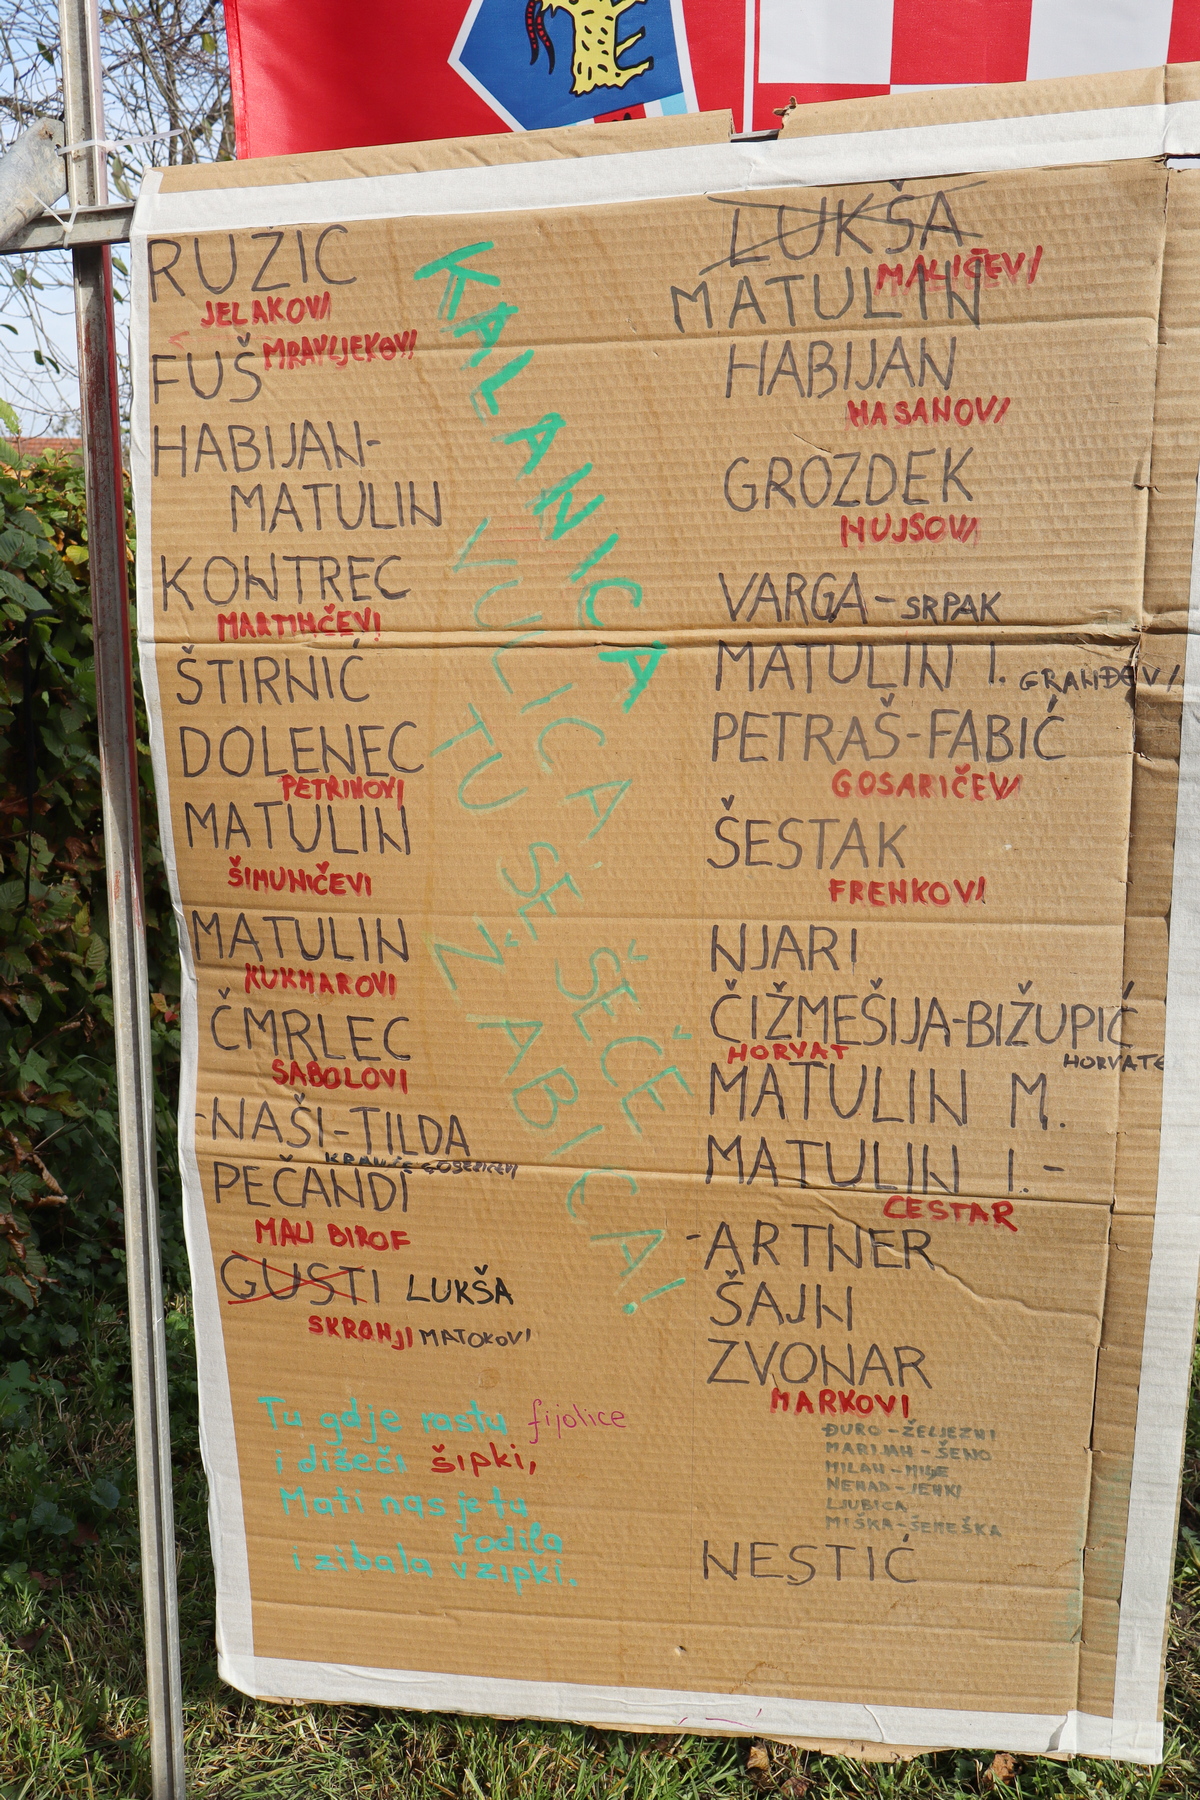 RUŽIĆ
JELAKOVI
FUŠ MRAVLJEKOVI
HABIJAN-
MATULIN
KONTREC
MARTINČEVI
ŠTIRNIĆ
DOLENEC
PETRINOVI
MATULIN
ŠIMUNIČEVI
MATULIN
KUKMAROVI
ČMRLEC
SABOLOVI
-NAŠI-TILDA
PEČANDI
MALI BIROF
GUSTI LUKŠA
SKROHJI MATOKOVI
KALANICA
VULICA,
TU SE ŠEČE
ŽABICA!
Tu gdje rastu fijolice
i dišeči šipki,
Mati nas je tu
rodila
i zibala v zipki.
LUKŠA
MALIČEVI
MATULIN
HABIJAN
HASANOVI
GROZDEK
HUJSOVI
VARGA-SRPAK
MATULIN I. GRANĐEVI
PETRAŠ-FABIĆ
GOSARIČEVI
ŠESTAK
FRENKOVI
NJARI
ČIŽMEŠIJA-BIŽUPIĆ
HORVAT
MATULIN M.
MATULIN I.-
CESTAR
-ARTNER
ŠAJN
ZVONAR
MARKOVI
ĐURO-ŽELJEZNI
MARIJAN-ŠENO
MILAN-MIJE
NENAD-JENKI
LJUBICA
MIŠKA-ŠEMEŠKA
NESTIĆ